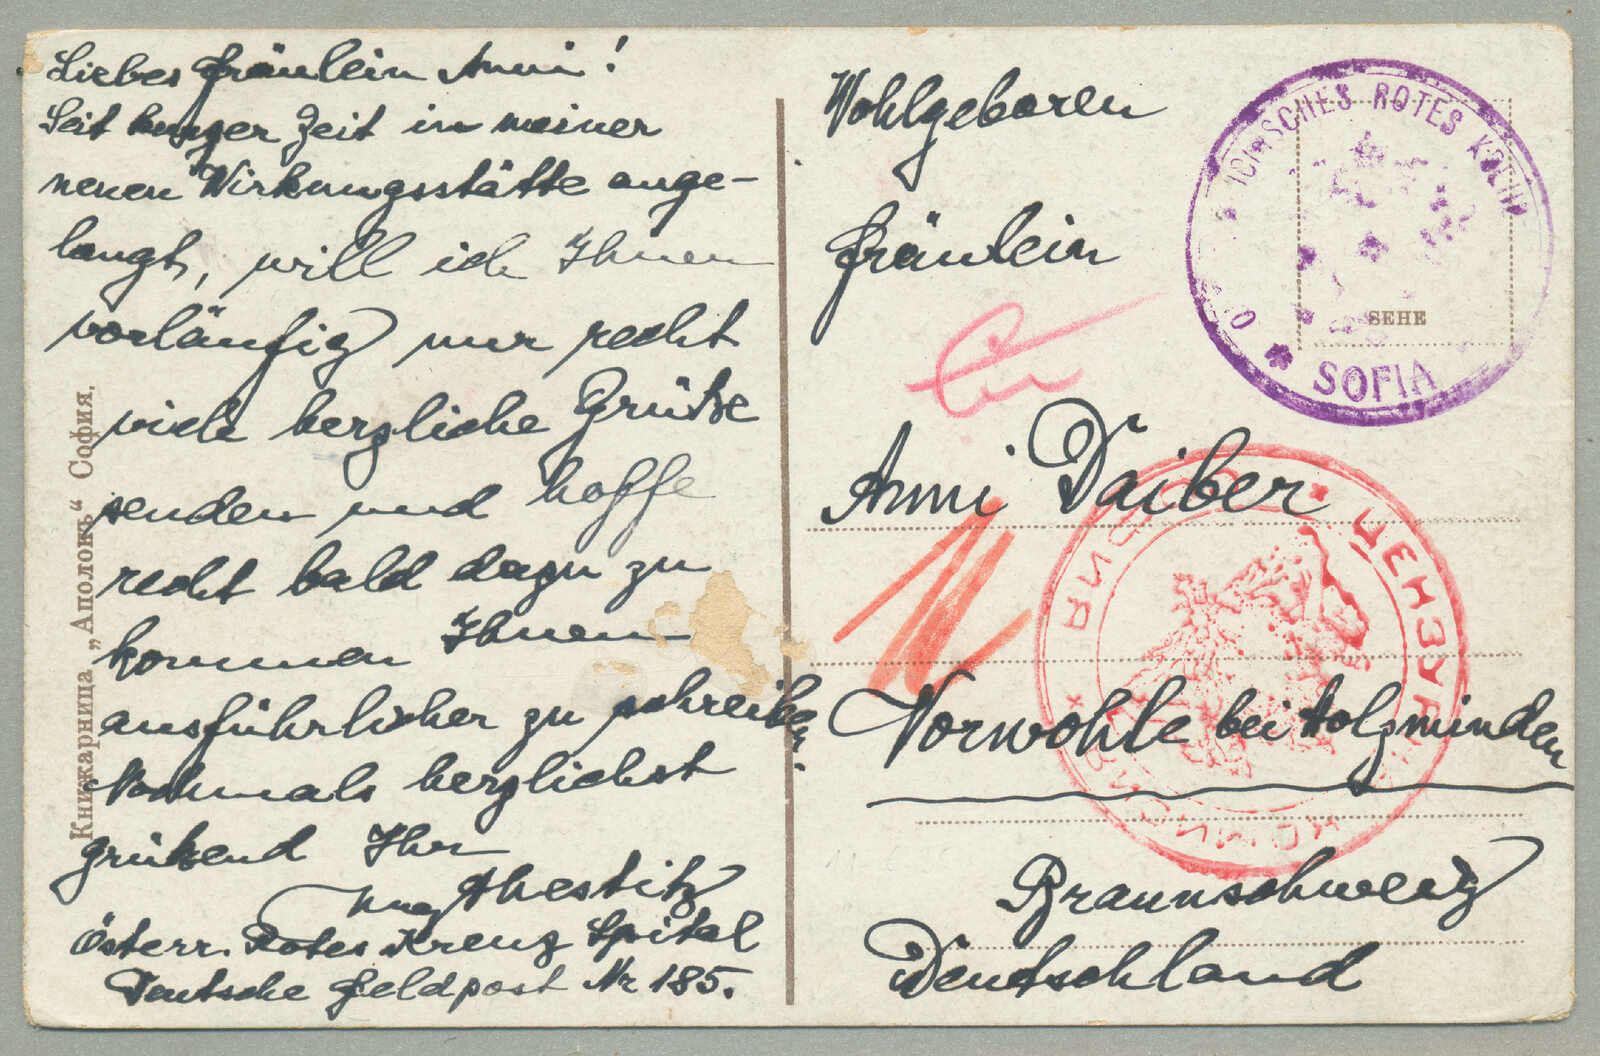 Liebes Fräulein Anni!
Seit kurzer Zeit in meiner
neuen Wirkungsstätte ange-
langt, will ich Ihnen
vorläufig nur recht
viele herzliche Grütze
senden und hoffe
recht bald dazu zu
kommen Ihnen
ausführlicher zu schreiben.
Nochmals herzlichst
grützend Ihr
Österr. Rotes Kreuz Spital
Deutsche Feldpost Nr 185.
Книжарница „Аполонъ“ София.
Wohlgeboren
Fräulein
Anni Daiber
Vorwohle bei Holzminden
Braunschweig
Deutschland
ROTES KREUZ
SOFIA
SEHE
ЦЕНЗУРНА